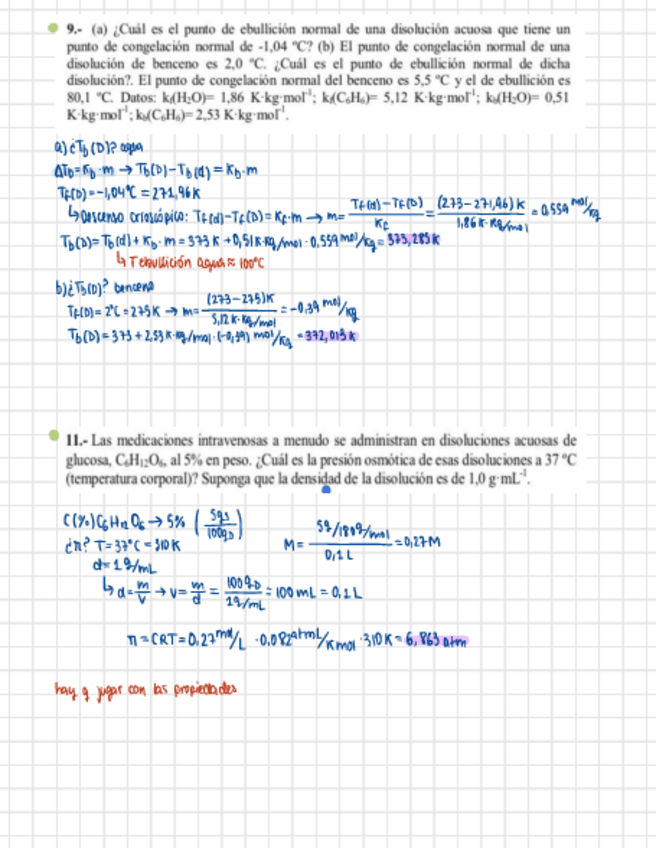 9.- (a) ¿Cuál es el punto de ebullición normal de una disolución acuosa que tiene un
punto de congelación normal de -1,04 ºC? (b) El punto de congelación normal de una
disolución de benceno es 2,0 ºC. ¿Cuál es el punto de ebullición normal de dicha
disolución?. El punto de congelación normal del benceno es 5,5 ºC y el de ebullición es
80,1 ºC. Datos: kf(H2O)= 1,86 K·kg·mol-1; kf(C6H6)= 5,12 K·kg·mol-1; kb(H2O)= 0,51
K·kg·mol-1; kb(C6H6)= 2,53 K·kg·mol-1.
a) ¿Tb (D)? agua
ΔTb=Kb·m → Tb(D)-Tb(d)=Kb·m
Tf(D)=-1,04ºC = 271,96K
↳ Descenso crioscópico: Tf(d)-Tf(D)=Kf·m → m= Tf(d)-Tf(D) / Kf = (273-271,96) K / 1,86 K·Kg/mol = 0,559 mol/Kg
Tb(D)=Tb(d)+Kb·m = 373 K + 0,51K·Kg/mol · 0,559 mol/Kg = 373,285K
↳ Tebullición agua ≈ 100ºC
b) ¿Tb(D)? benceno
Tf(D)= 2ºC = 275K → m= (273-275)K / 5,12 K·Kg/mol = -0,39 mol/Kg
Tb(D)= 373 + 2,53 K·Kg/mol · (-0,39) mol/Kg = 372,013 K
11.- Las medicaciones intravenosas a menudo se administran en disoluciones acuosas de
glucosa, C6H12O6, al 5% en peso. ¿Cuál es la presión osmótica de esas disoluciones a 37 ºC
(temperatura corporal)? Suponga que la densidad de la disolución es de 1,0 g·mL-1.
C(%) C6H12O6 → 5% (5gs / 100gD)
¿π? T= 37ºC = 310K
M= 5g/180g/mol / 0,1L = 0,27M
d= 1g/mL
↳ d= m/v → v= m/d = 100gD / 1g/mL = 100 mL = 0,1L
π = CRT = 0,27mol/L · 0,082atmL/Kmol · 310K = 6,863 atm
hay q jugar con las propiedades